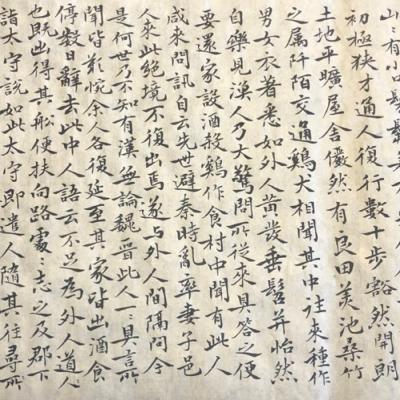 山〻有小口髣髴
初極狹才通人復行數十步豁然開朗
土地平曠屋舍儼然有良田美池桑竹
之属阡陌交通鷄犬相聞其中往來種作
男女衣著悉如外人黃髮垂髫并怡然
自樂見漁人乃大驚問所從來具答之便
要還家設酒殺鷄作食村中聞有此人
咸來問訊自云先世避秦時亂率妻子邑
人來此絕境不復出焉遂与外人間隔問今
是何世乃不知有漢無論魏晉此人一〻具言所
聞皆歎惋余人各復延至其家皆出酒食
停數日辭去此中人語云不足為外人道
也既出得其船便扶向路處〻志之及郡下
詣太守說如此太守即遣人隨其往尋所